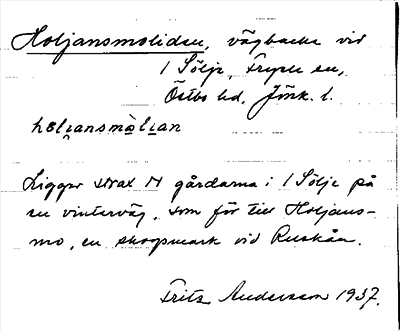 Holjansmoliden, vägbacke vid
1 Sölje, Fryele sn,
Östbo hd, Jönk. l.
holjansmolian
Ligger strax N gårdarna i 1 Sölje på
en vinterväg, som för till Holjans-
mo, en skogsmark vid Ruskån.
Frits Andersson 1937.